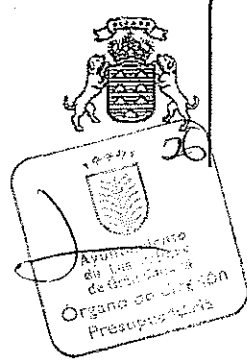 OCEANO
26
Ayuntamiento
de Las Palmas
de Gran Canaria
Órgano de Gestión
Presupuestaria